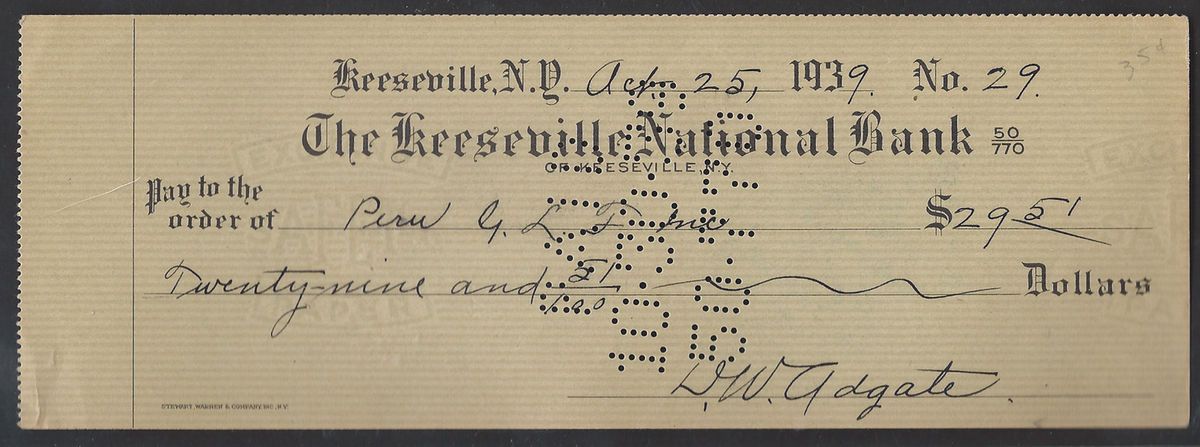 35¢
Keeseville, N.Y. Oct. 25, 1939. No. 29.
The Keeseville National Bank 50/770
OF KEESEVILLE, N.Y.
Pay to the
order of Peru G. L. F. Inc $29 51
Twenty-nine and 51/100 Dollars
D. W. Adgate.
STEWART, WARREN & COMPANY, INC., N.Y.